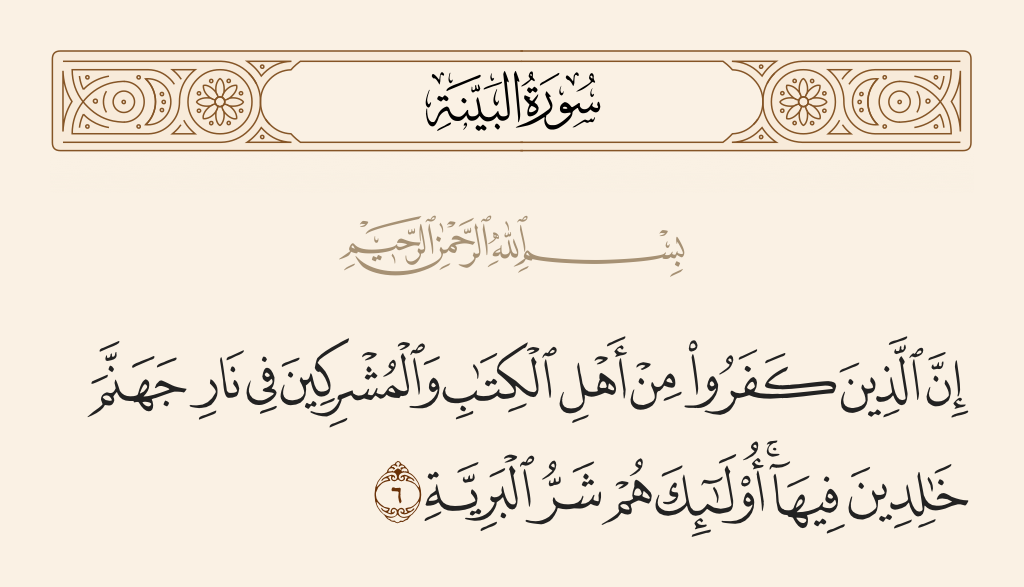 سُورَةُ البَيِّنَةِ
بِسْمِ ٱللَّهِ ٱلرَّحْمَٰنِ ٱلرَّحِيمِ
إِنَّ ٱلَّذِينَ كَفَرُوا۟ مِنْ أَهْلِ ٱلْكِتَٰبِ وَٱلْمُشْرِكِينَ فِى نَارِ جَهَنَّمَ
خَٰلِدِينَ فِيهَآ ۚ أُو۟لَٰٓئِكَ هُمْ شَرُّ ٱلْبَرِيَّةِ ٦